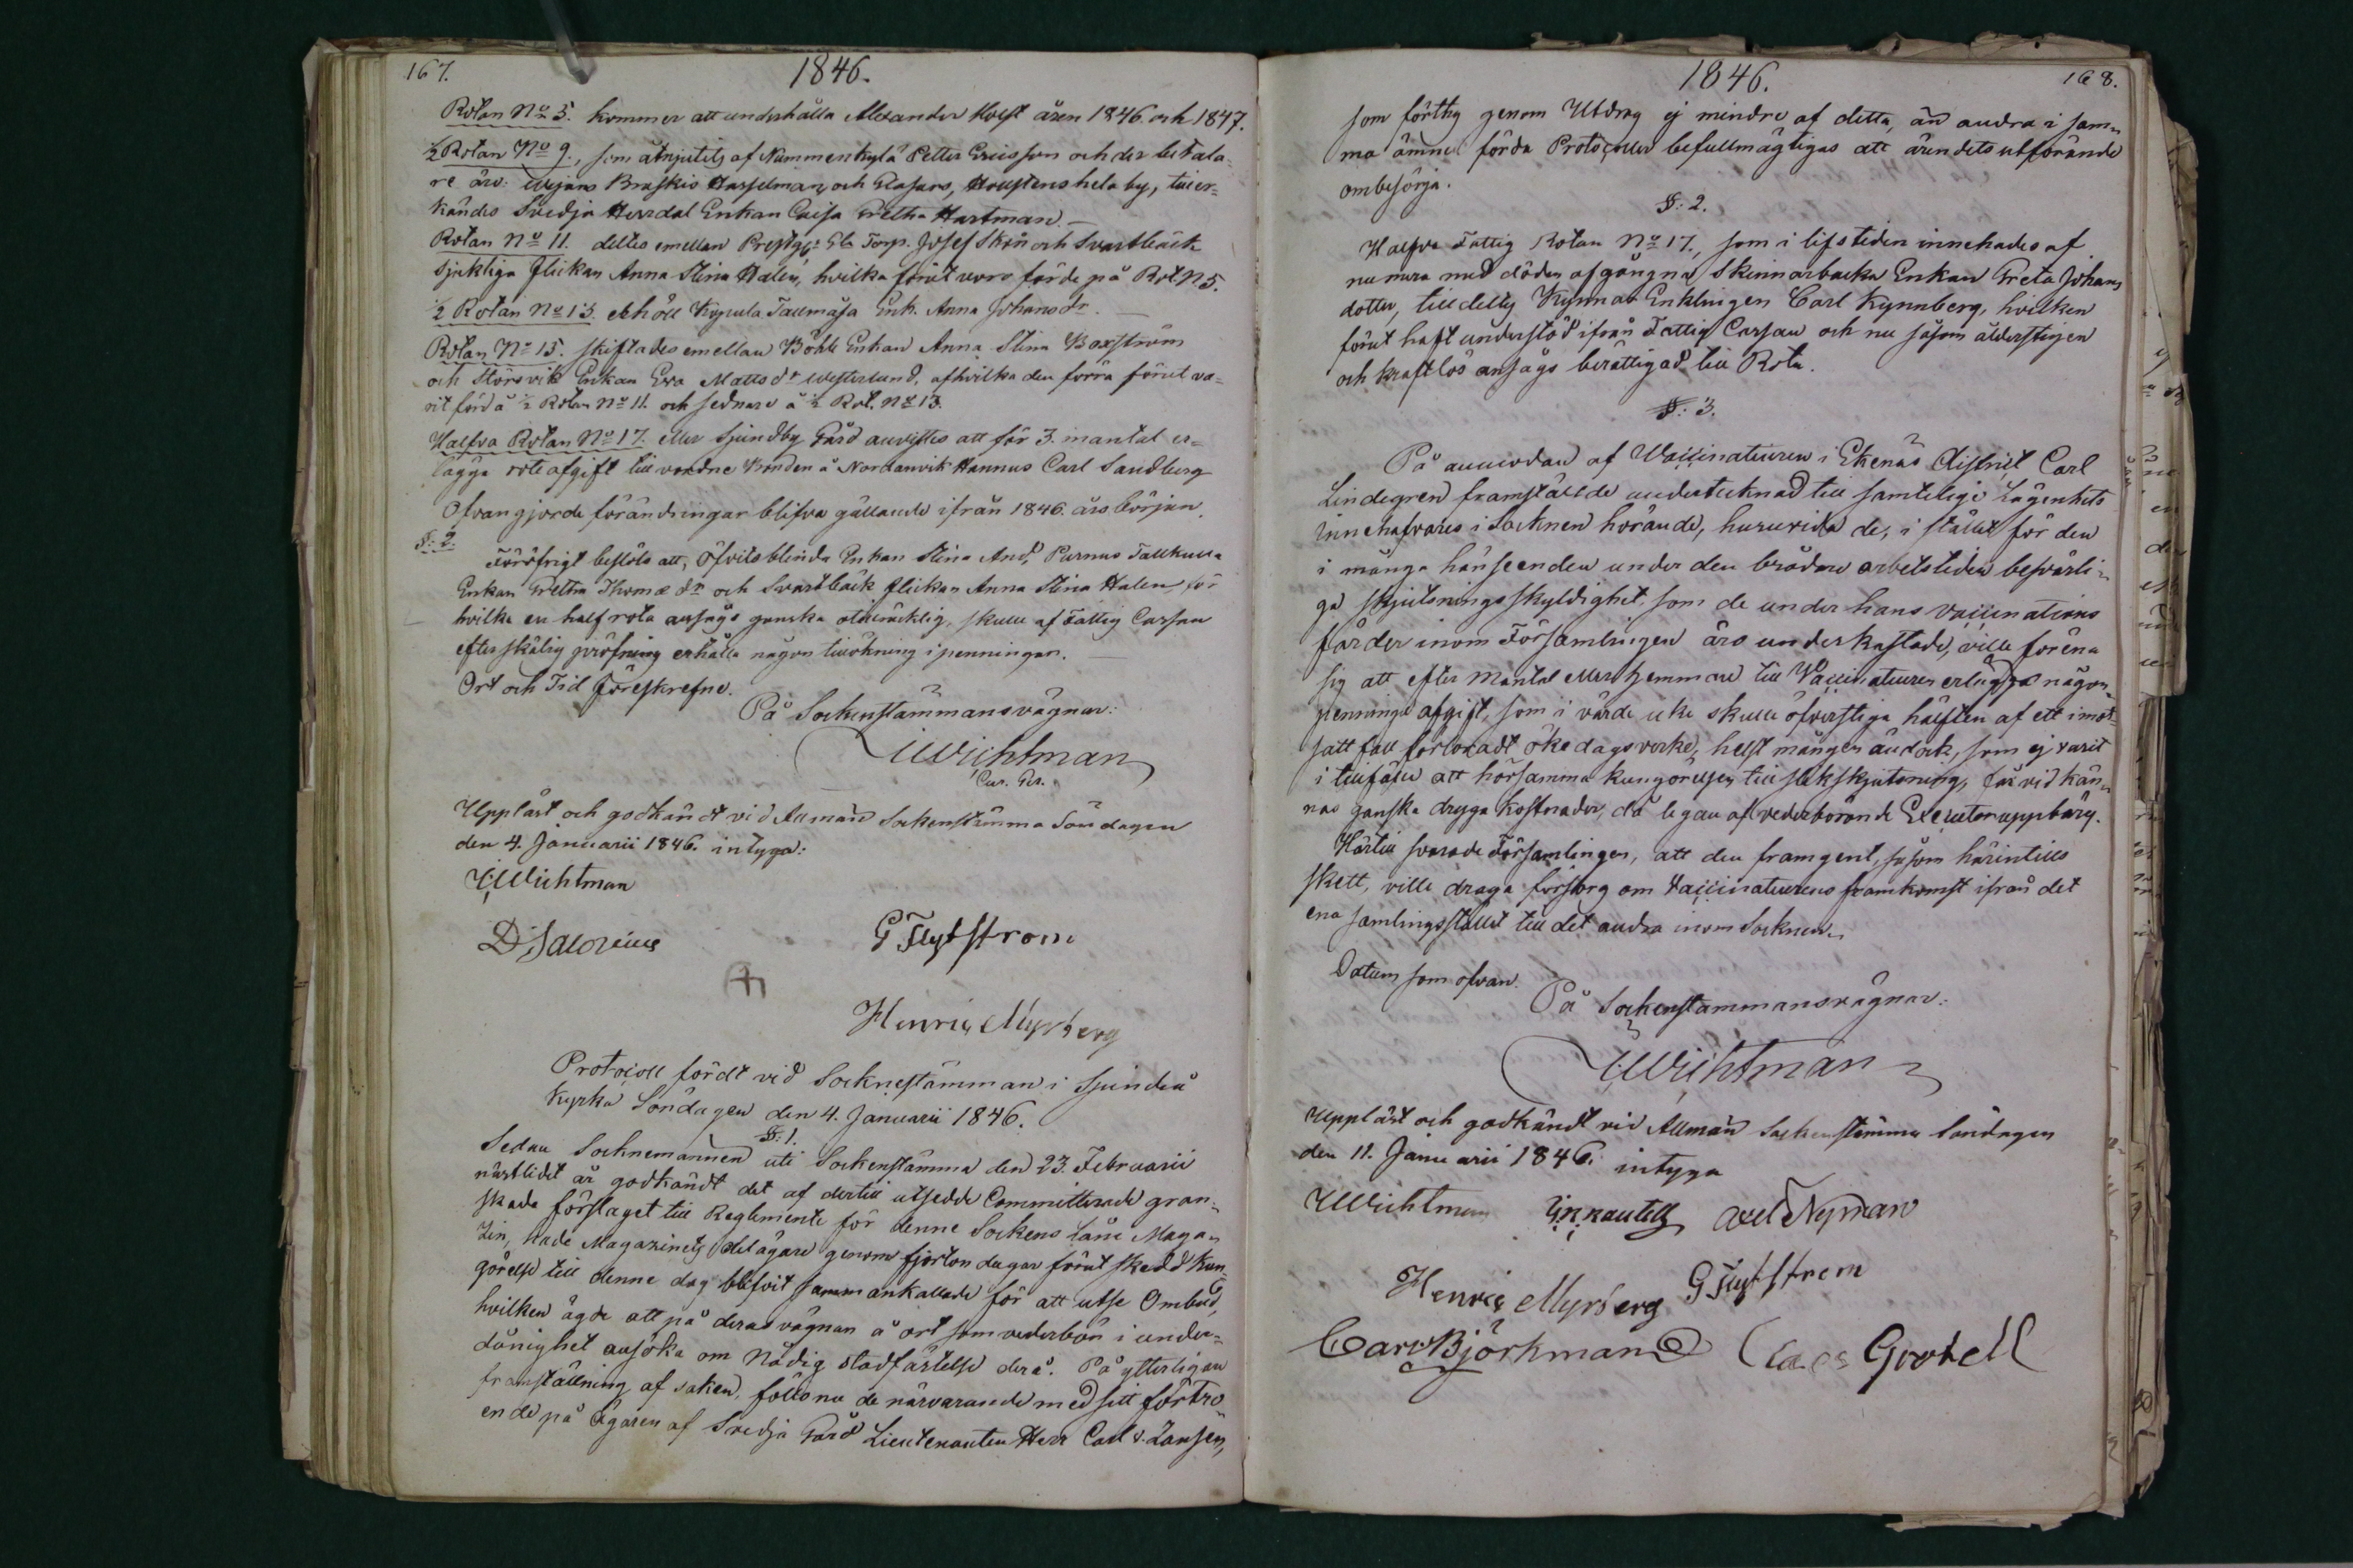 167.
1846.
Rotan No 5. kommer att underhålla Alexander Holst åren 1846. och 1847.
½ Rotan No 9., som åtnjutits af Nummenkylä Petter Ericsson och der betala-
re äro: Braskis Hasselmans och Glasars, hela by, tiller-
kändes Svedja Herrdal Enkan Cajsa Gretha Hartman.
Rotan No 11. deltes emellan Prestgs Torp. Josef Skön och Svartbäck
sjukliga flickan Anna Stina Halen, hvilka förut voro förde på Rot N 5.
½ Rotan No 13. erhöll Kypula Tallmåsa Enk. Anna Johansdr.
Rotan No 15. skiftades emellan Böhle Enkan Anna Stina Boxström
och Störsvik Enkan Eva Mattsdr Westerlund, af hvilka den förra förut va-
rit förd å ½ Rotan No 11. och sednare å ½ Rot. No 13.
Halfva Rotan No 17. eller Sjundby Gård anvistes att för 3. mantal er-
lägga roteafgift till vordne Bonden å Nordanvik Hannus Carl Sandberg
Ofvangjorde förändringar blifva gällande ifrån 1846. års början.
§: 2.
Föröfrigt beslöts att, Öfvits blinda Enkan Stina And, Purnus Tallkulla
Enkan Gretha Thomædr och Svartbäck flickan Anna Stina Halen, för
hvilka en half rota ansågs ganska otillräcklig, skulle af Fattig Cassan
efter skälig pröfning erhålla någon tillökning i penningar.
Ort och Tid föreskrefne.
På Sockenstämmans vägnar:
Wichtman
Cur. Per.
Uppläst och godkändt vid Allmän Sockenstämma Söndagen
den 4. Januarii 1846. intyga:
Wichtman
G Flytström
Henric Myrberg
Protocoll fördt vid Socknestämman i Sjundeå
Kyrka Söndagen den 4. Januarii 1846.
§: 1.
Sedan Socknemännen uti Sockenstämma den 23. Februarii
nästlidet år godkändt det af dertill utsedde Committerade gran-
skade förslaget till Reglemente för denne Sockens Låne Maga-
zin, hade Magazinets delägare genom fjorton dagar förut skedd kun-
görelse till denne dag blifvit sammankallade för att utse Ombud,
hvilken ägde att på deras vägnar å ort som vederbör i under-
dånighet ansöka om Nådig Stadfästelse derå. På ytterligare
framställning af saken, föllo nu de närvarande med sitt förtro-
ende på Ägaren af Svedja Gård Lieutenanten Herr Carl v. Zansen,
1846.
168.
som förthy genom Utdrag ej mindre af detta, än andra i sam-
ma ämne förda Protocoller befullmägtigas att ärendets utförande
ombesörja.
§: 2.
Halfva Fattig Rotan No 17., som i lifstiden innehades af
numera med döden afgångna Skinnarbacka Enkan Greta Johans
dotter, tilldelts Kynnar Enklingen Carl Kynnberg, hvilken
förut haft understöd ifrån Fattig Cassan och nu såsom ålderstigen
och kraftlös ansågs berättigad till Rota.
§: 3.
På anmodan af Vaccinateuren i Ekenäs District Carl
Lindegren framställde undertecknad till samtelige Lägenhets
innehafvares i Socknen hörande, huruvida de, i stället för den
i många hänseenden under den brådare arbetstiden besvärli-
ga skjutsningsskyldighet, som de under hans vaccinations
färder inom Församlingen äro underkastade, ville förena
sig att efter mantal eller hemman till Vaccinateuren erlägga någon
penninge afgift, som i värde icke skulle öfverstiga hälften af ett i mot-
satt fall förloradt ökedagsverke, helst mången ändock, som ej varit
i tillfälle att hörsamma kungörelsen till slik skjutsning, får vidkän-
nas ganska dryga kostnader, då legan af vederbörande Executor uppbäres.
Härtill svarade Församlingen, att den framgent, såsom härintills
skett, ville draga försorg om Vaccinateurens framkomst ifrån det
ena samlingsstället till det andra inom Socknen.
Datum som ofvan.
På Sockenstämmans vägnar:
Wichtman
Uppläst och godkändt vid Allmän Sockenstämma Söndagen
den 11. Januarii 1846. intyga
Wichtman Axel Nyman
Henric Myrberg G Flytström
Carl Björkman Claes Grotell